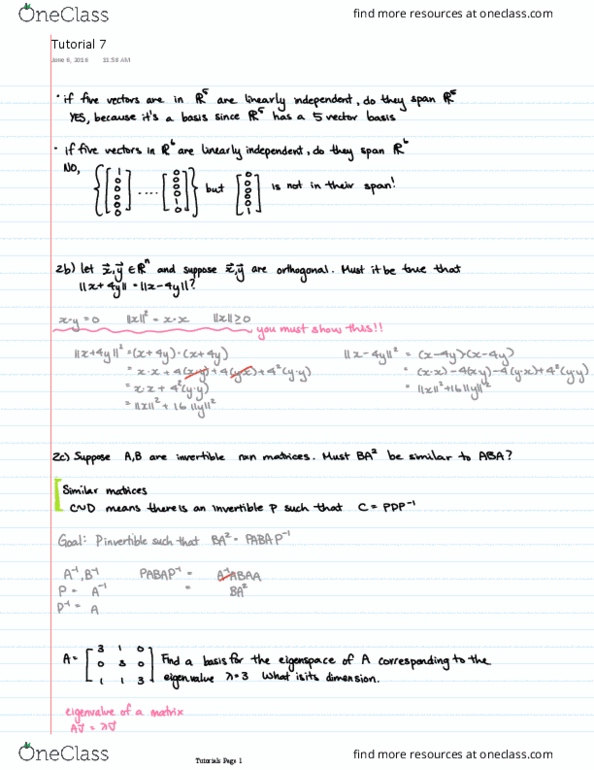 OneClass
find more resources at oneclass.com
Tutorial 7
June 6, 2016 11:58 AM
• if five vectors are in ℝ⁵ are linearly independent, do they span ℝ⁵
YES, because it's a basis since ℝ⁵ has a 5 vector basis
• if five vectors in ℝ⁶ are linearly independent, do they span ℝ⁶
NO, {[1 0 0 0 0] .... [0 0 0 1 0]} but [0 0 0 0 1] is not in their span!
2b) let x⃗,y⃗ ∈ ℝⁿ and suppose x⃗,y⃗ are orthogonal. Must it be true that
||x+4y|| = ||x-4y||?
x·y=0 ||x||² = x·x ||x||≥0
you must show this!!
||x+4y||² = (x+4y)·(x+4y) ||x-4y||² = (x-4y)·(x-4y)
= x·x + 4(x·y)+4(y·x)+4²(y·y) = (x·x)-4(x·y)-4(y·x)+4²(y·y)
= x·x + 4²(y·y) = ||x||²+16||y||²
= ||x||² + 16||y||²
2c) Suppose A,B are invertible nxn matrices. Must BA² be similar to ABA?
Similar matrices
C~D means there is an invertible P such that C = PDP⁻¹
Goal: P invertible such that BA² = PABAP⁻¹
A⁻¹,B⁻¹ PABAP⁻¹ = A⁻¹ABAA
P = A⁻¹ = BA²
P⁻¹ = A
A = [3 1 0
0 3 0
1 1 3] Find a basis for the eigenspace of A corresponding to the
eigenvalue λ=3 What is its dimension.
eigenvalue of a matrix
Av⃗ = λv⃗
OneClass
Tutorials Page 1
find more resources at oneclass.com